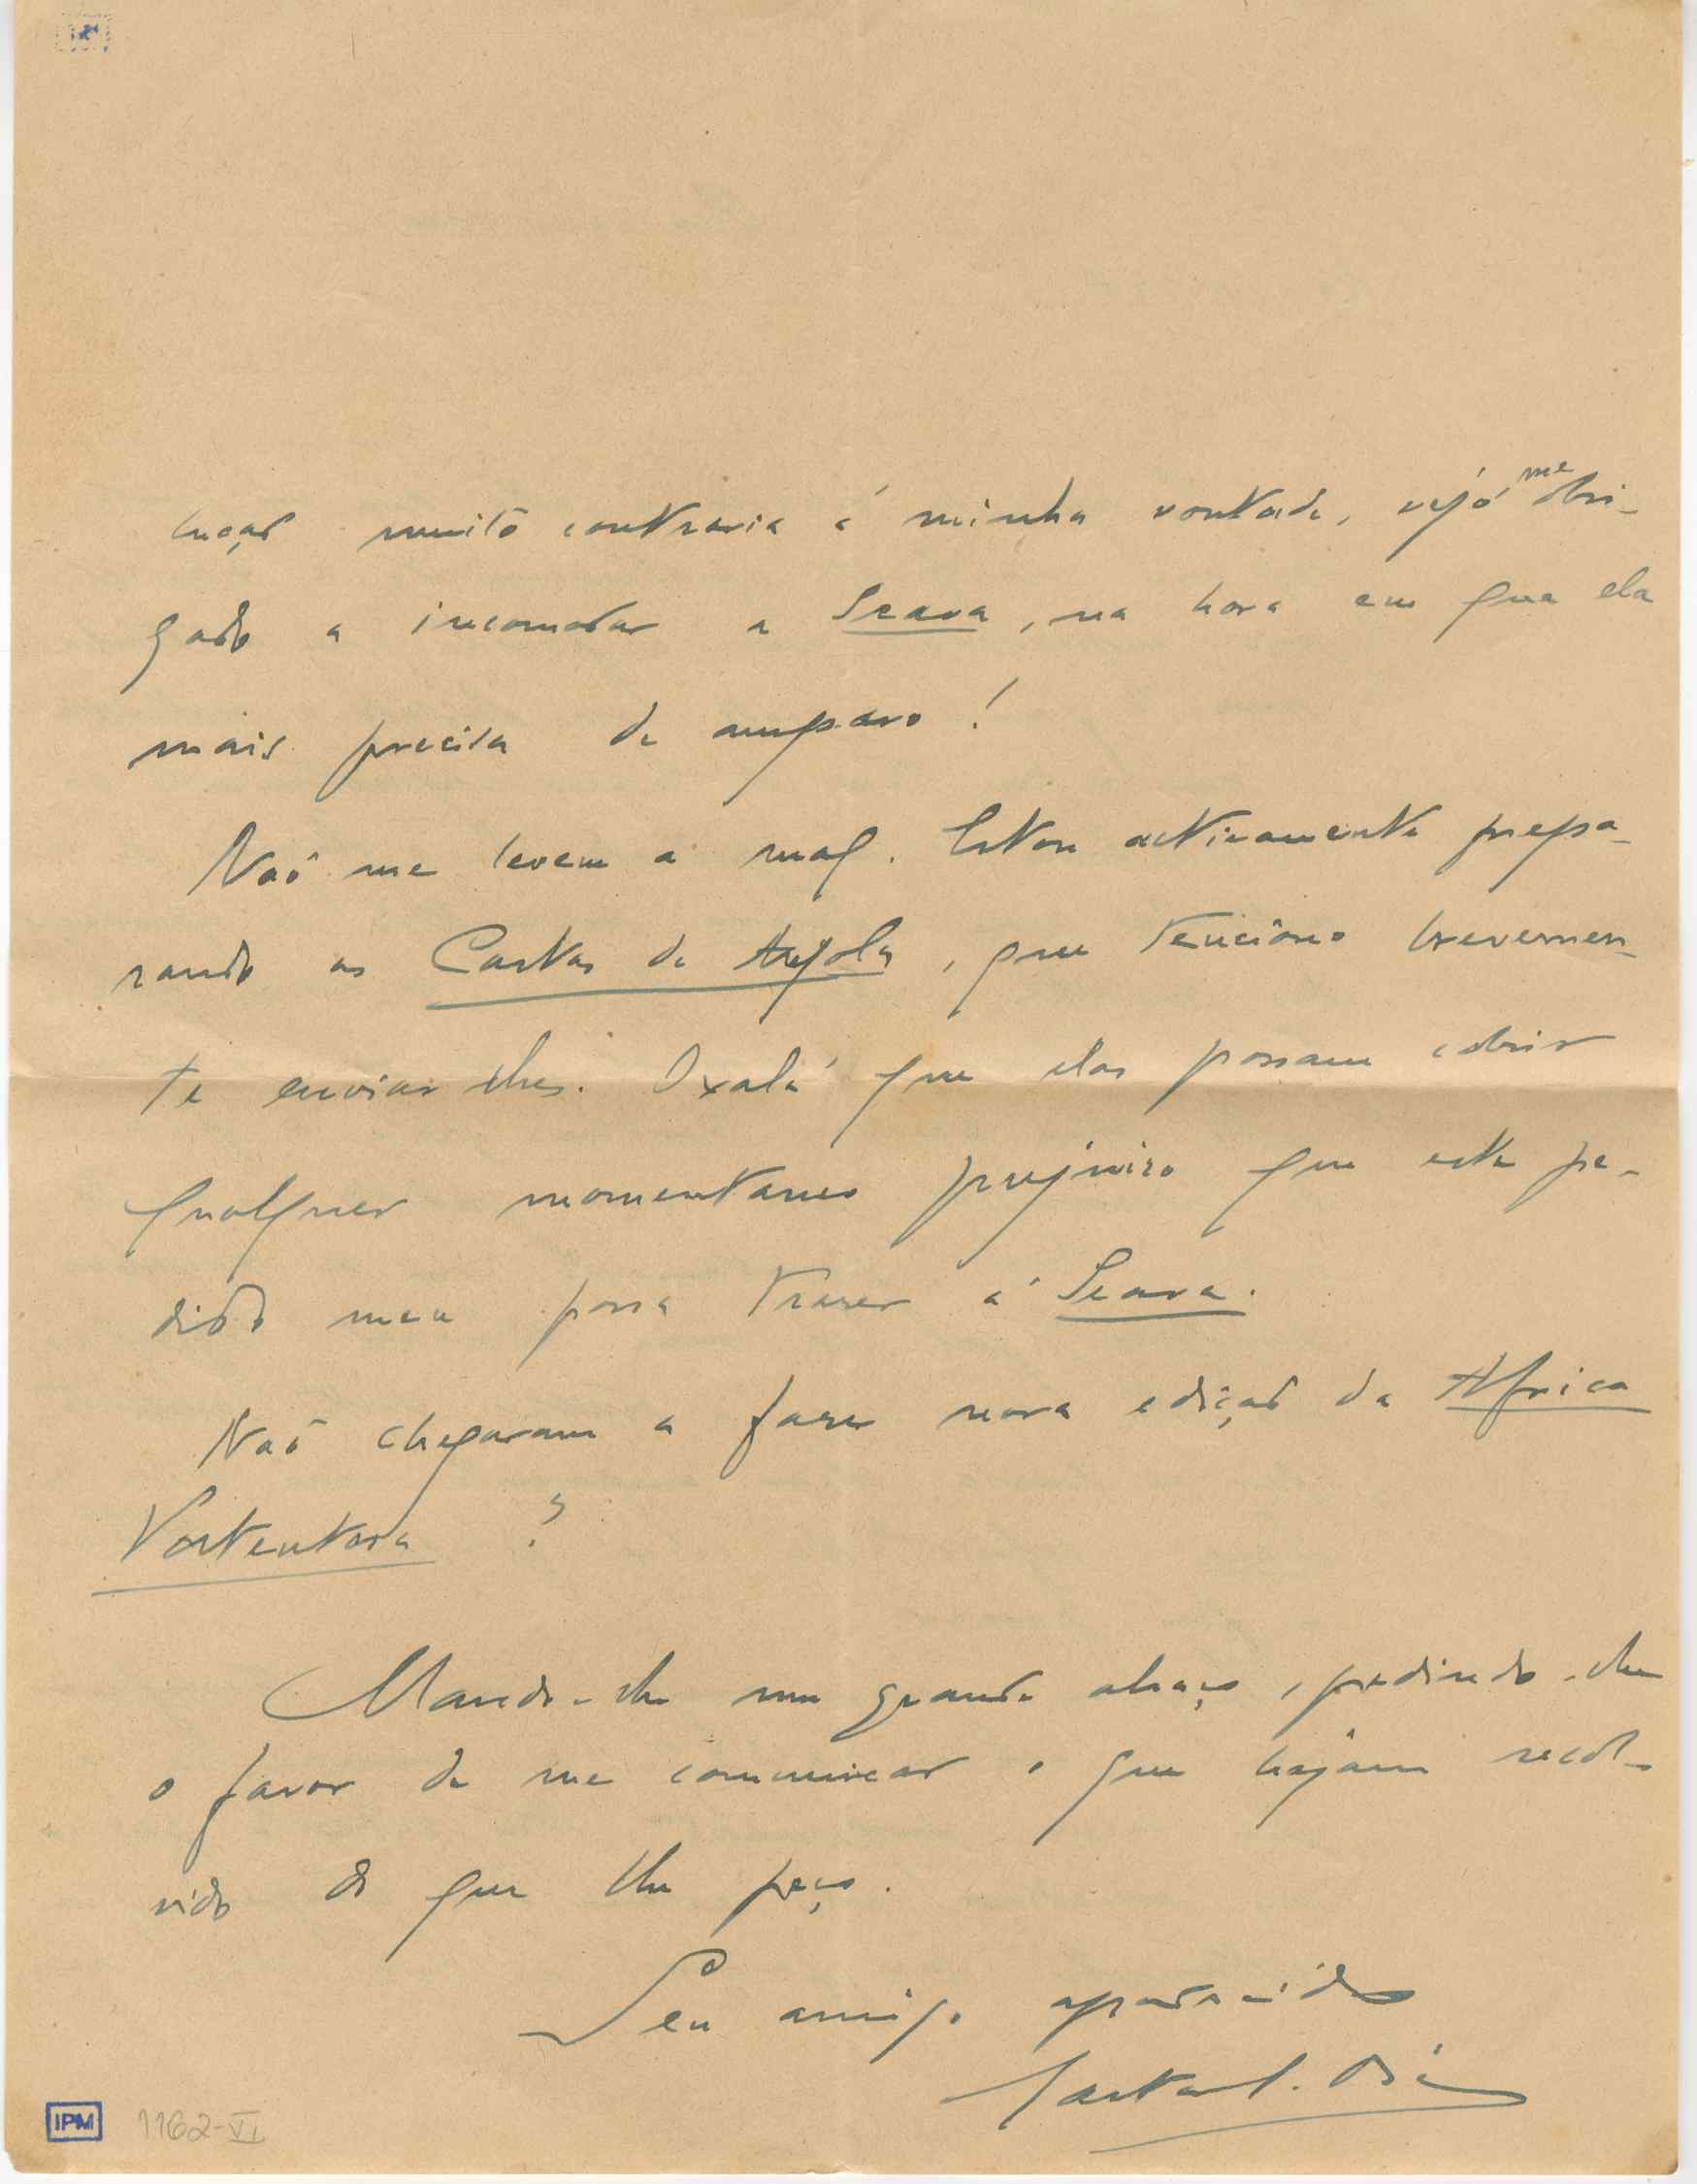 luçaõ muitõ contraria á minha vontade, vejó me obri-
gado a incomodar a Seara, na hora em que ela
mais precisa de amparo!
Naõ me levem a mal. Estou activamente prepa-
rando as Cartas de Angola, que tenciono brevemen-
te enviar-lhes. Oxalá que elas possam cobrir
qualquer momentaneo prejuizo que este pe-
dido meu possa trazer á Seara.
Naõ chegaram a fazer nova ediçaõ da Africa
Portentosa?
Mando-lhe um grande abraço, pedindo-lhe
o favor de me comunicar o que hajam resol-
vido do que lhe peço.
Seu amigo agradecido
IPM 1162-VI